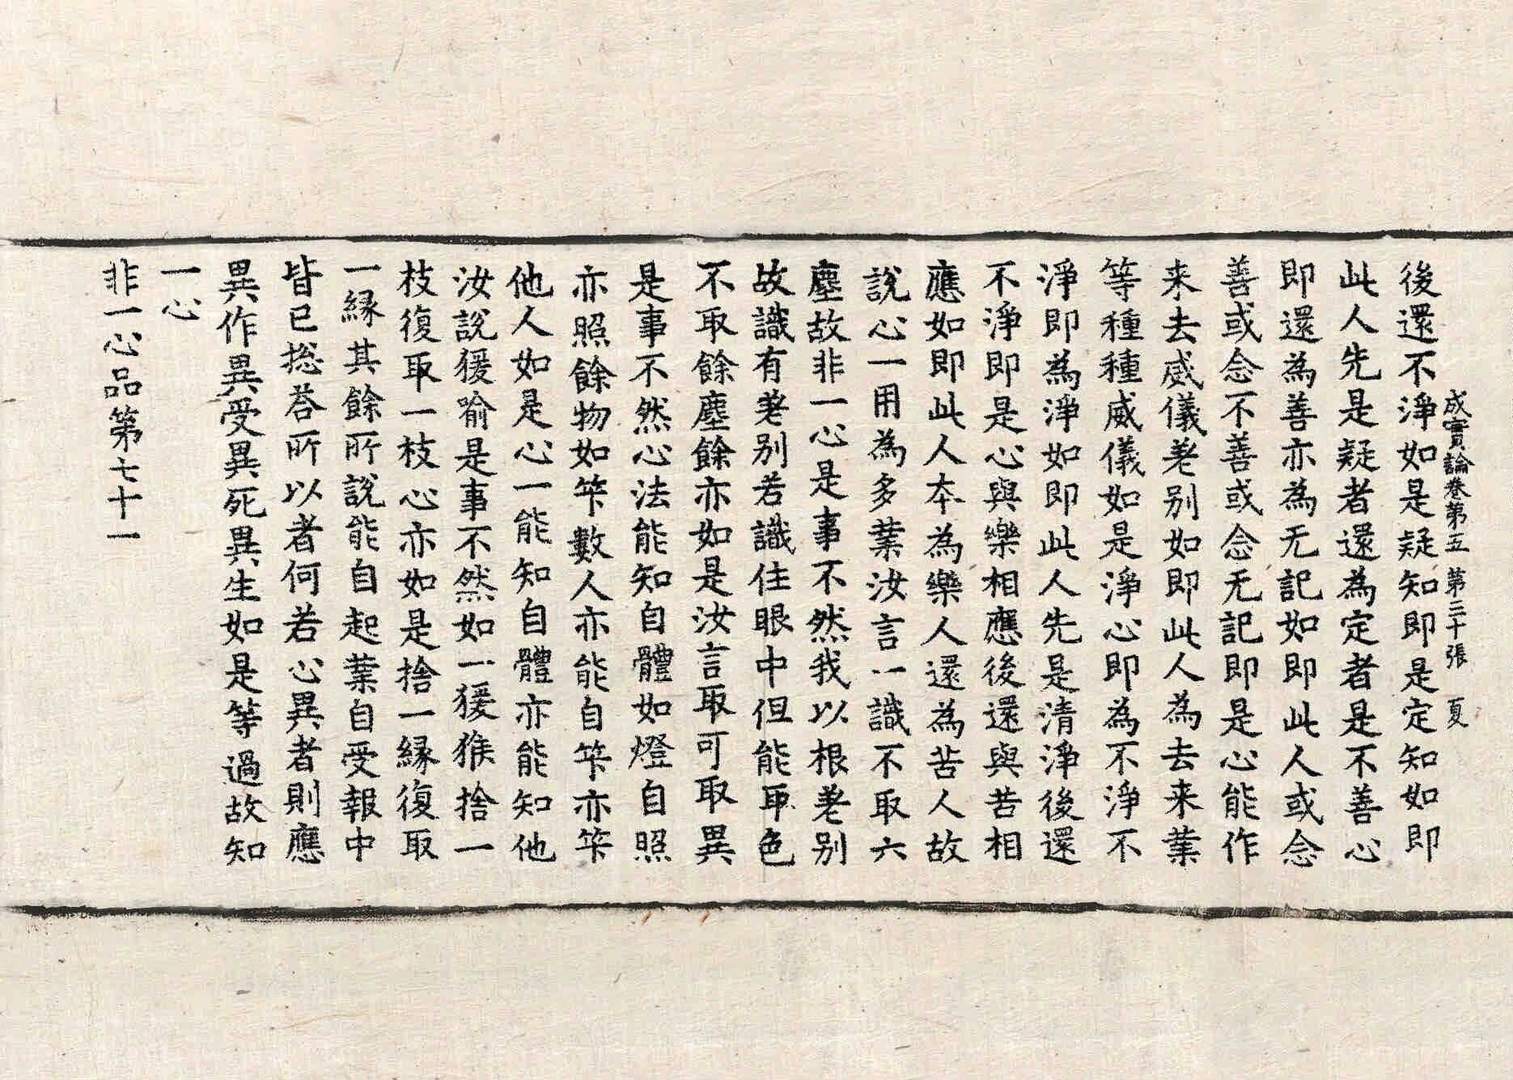 成實論卷第五 第三十張 夏
後還不淨如是疑知即是定知如即
此人先是疑者還為定者是不善心
即還為善亦為无記如即此人或念
善或念不善或念无記即是心能作
来去威儀差别如即此人為去来業
等種種威儀如是淨心即為不淨不
淨即為淨如即此人先是清淨後還
不淨即是心與樂相應後還與苦相
應如即此人本為樂人還為苦人故
說心一用為多業汝言一識不取六
塵故非一心是事不然我以根差别
故識有差别若識住眼中但能取色
不取餘塵餘亦如是汝言取可取異
是事不然心法能知自體如燈自照
亦照餘物如筭數人亦能自筭亦筭
他人如是心一能知自體亦能知他
汝說猨喻是事不然如一猨猴捨一
枝復取一枝心亦如是捨一緣復取
一緣其餘所說能自起業自受報中
皆已捴荅所以者何若心異者則應
異作異受異死異生如是等過故知
一心
非一心品第七十一